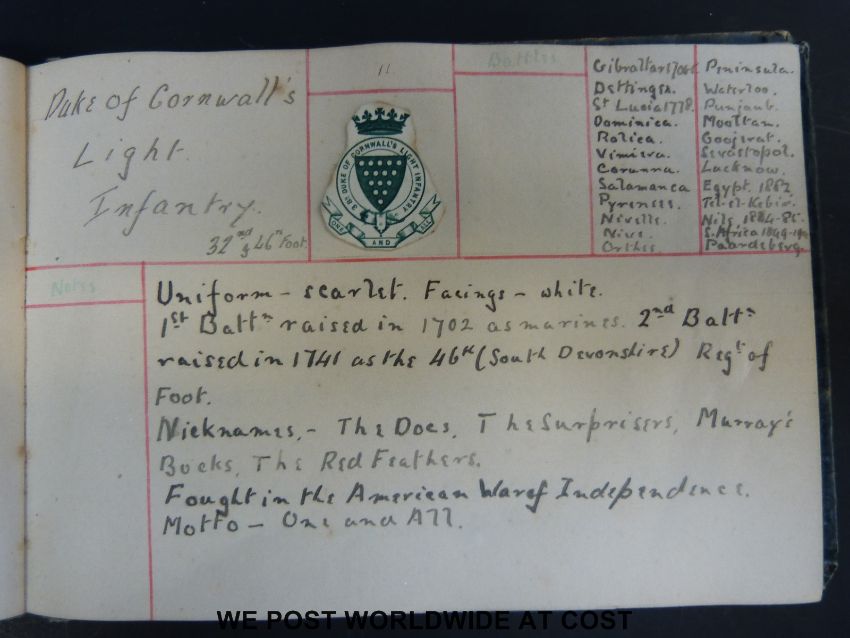 Duke of Cornwall's
Light
Infantry.
32nd & 46th Foot.
11
3RD DUKE OF CORNWALL'S LIGHT INFANTRY
ONE AND ALL
Battles
Gibraltar 1704-5
Dettingen.
St Lucia 1778.
Dominica.
Rolica.
Vimiera.
Corunna.
Salamanca
Pyrenees.
Nivelle.
Nive.
Orthes.
Peninsula.
Waterloo.
Punjaub.
Mooltan.
Goojerat.
Sevastopol.
Lucknow.
Egypt. 1882.
Tel-el-Kebir.
Nile 1884-85.
S. Africa 1899-1902
Paardeberg.
Notes
Uniform - scarlet. Facings - white.
1st Battn raised in 1702 as marines. 2nd Battn
raised in 1741 as the 46th (South Devonshire) Regt of
Foot.
Nicknames. - The Docs, The Surprisers, Murray's
Bucks, The Red Feathers.
Fought in the American War of Independence.
Motto - One and All.
WE POST WORLDWIDE AT COST